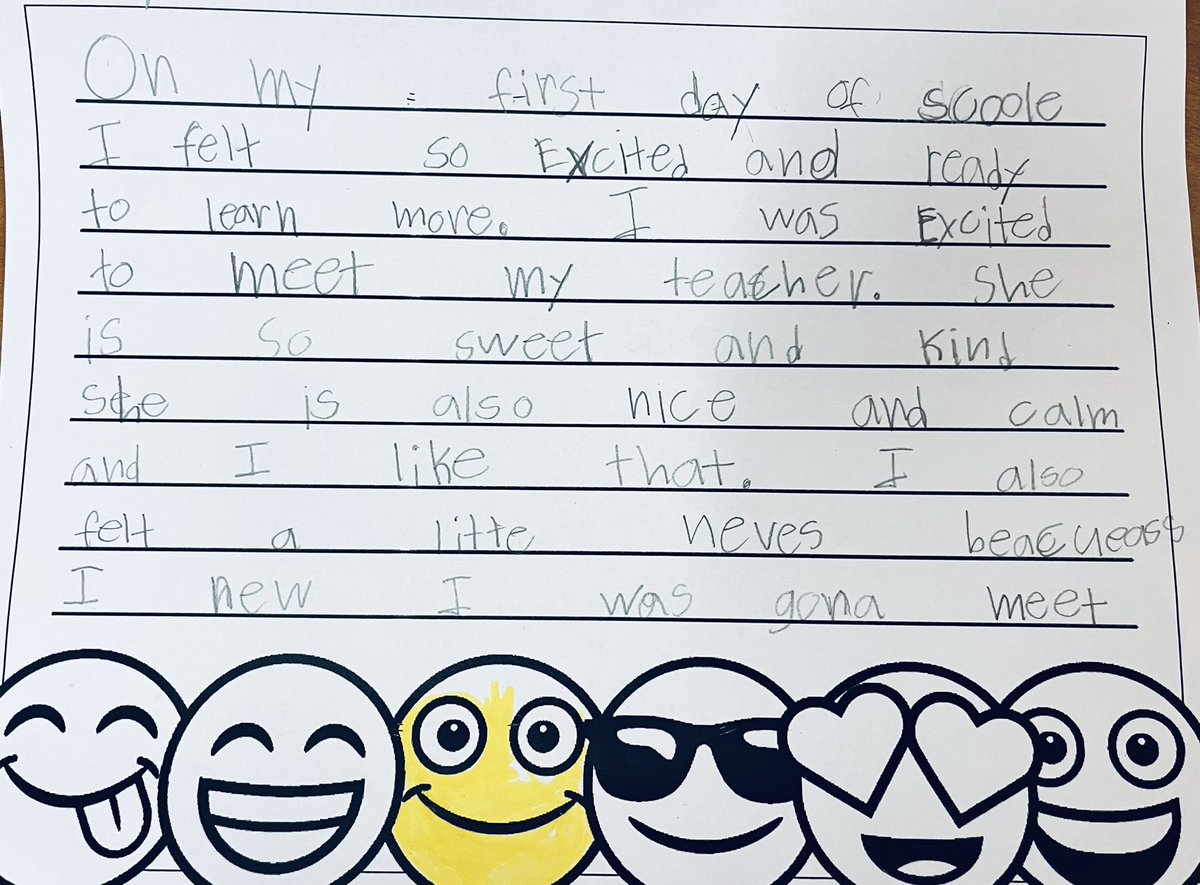 On my first day of scoole
I felt so Excited and ready
to learn more. I was Excited
to meet my teacher. She
is so sweet and kind
she is also nice and calm
and I like that. I also
felt a litte neves
I new I was gona meet